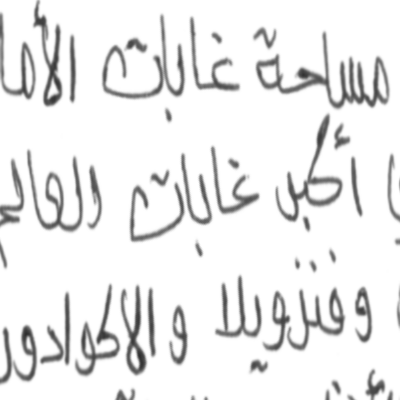 مساحة غابات الأما
أكبر غابات العالم
وفنزويلا والاكوادور